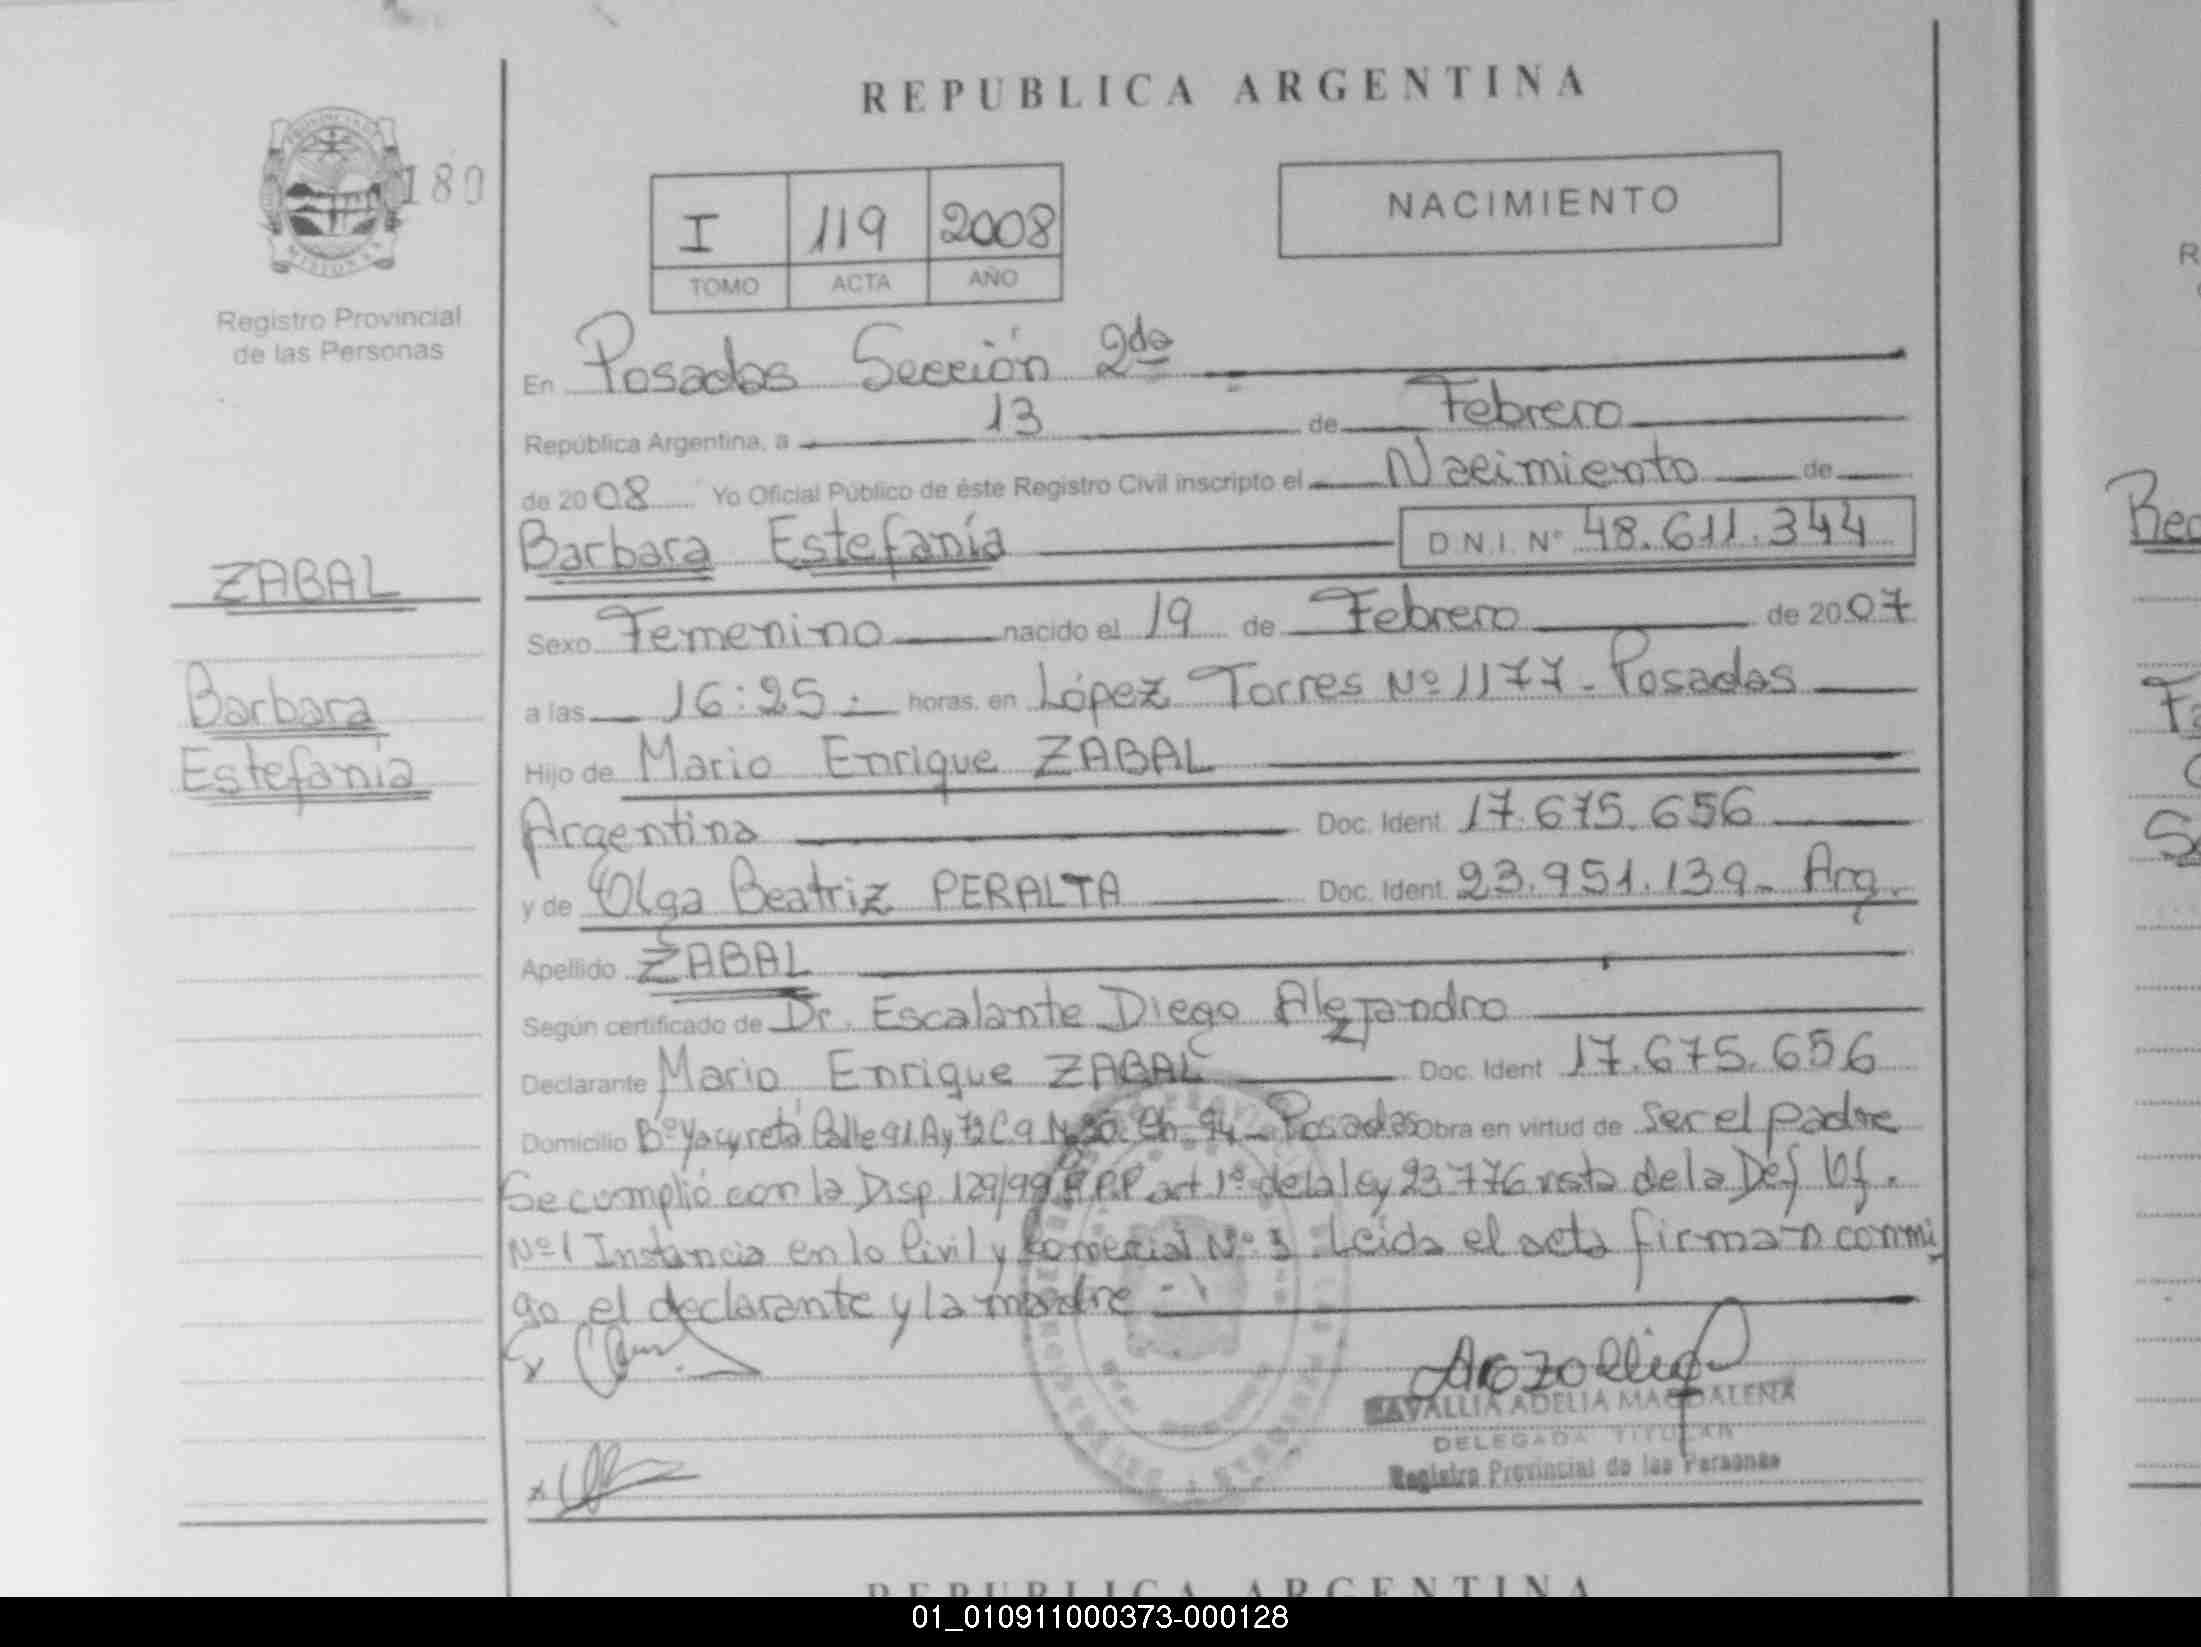 REPUBLICA ARGENTINA
PROVINCIA DE
MISIONES
180
Registro Provincial
de las Personas
I 119 2008
TOMO ACTA AÑO
NACIMIENTO
En Posadas Sección 2da
República Argentina, a 13 de Febrero
de 2008 Yo Oficial Público de éste Registro Civil inscripto el Nacimiento de
Barbara Estefanía D.N.I. N° 48.611.344
ZABAL
Barbara
Estefanía
Sexo Femenino nacido el 19 de Febrero de 2007
a las 16:25 horas. en López Torres Nº 1177 - Posadas
Hijo de Mario Enrique ZABAL
Argentina Doc. Ident. 17.675.656
y de Olga Beatriz PERALTA Doc. Ident. 23.951.139 - Arg.
Apellido ZABAL
Según certificado de Dr. Escalante Diego Alejandro
Declarante Mario Enrique ZABAL Doc. Ident 17.675.656
Domicilio Bº Yacyretá Calle 91 A y 72 C 9 Ch. 94 - Posadas Obra en virtud de ser el padre
Se cumplió con la Disp. 129/99 R.P.P art 1º de la ley 23.776 vista de la Def Of.
Nº 1 Instancia en lo Civil y Comercial Nº 3. Leída el acta firman conmi
go el declarante y la madre.-
CAVALLIA ADELIA MAGDALENA
DELEGADA TITULAR
Registro Provincial de las Personas
REPUBLICA ARGENTINA
01_010911000373-000128